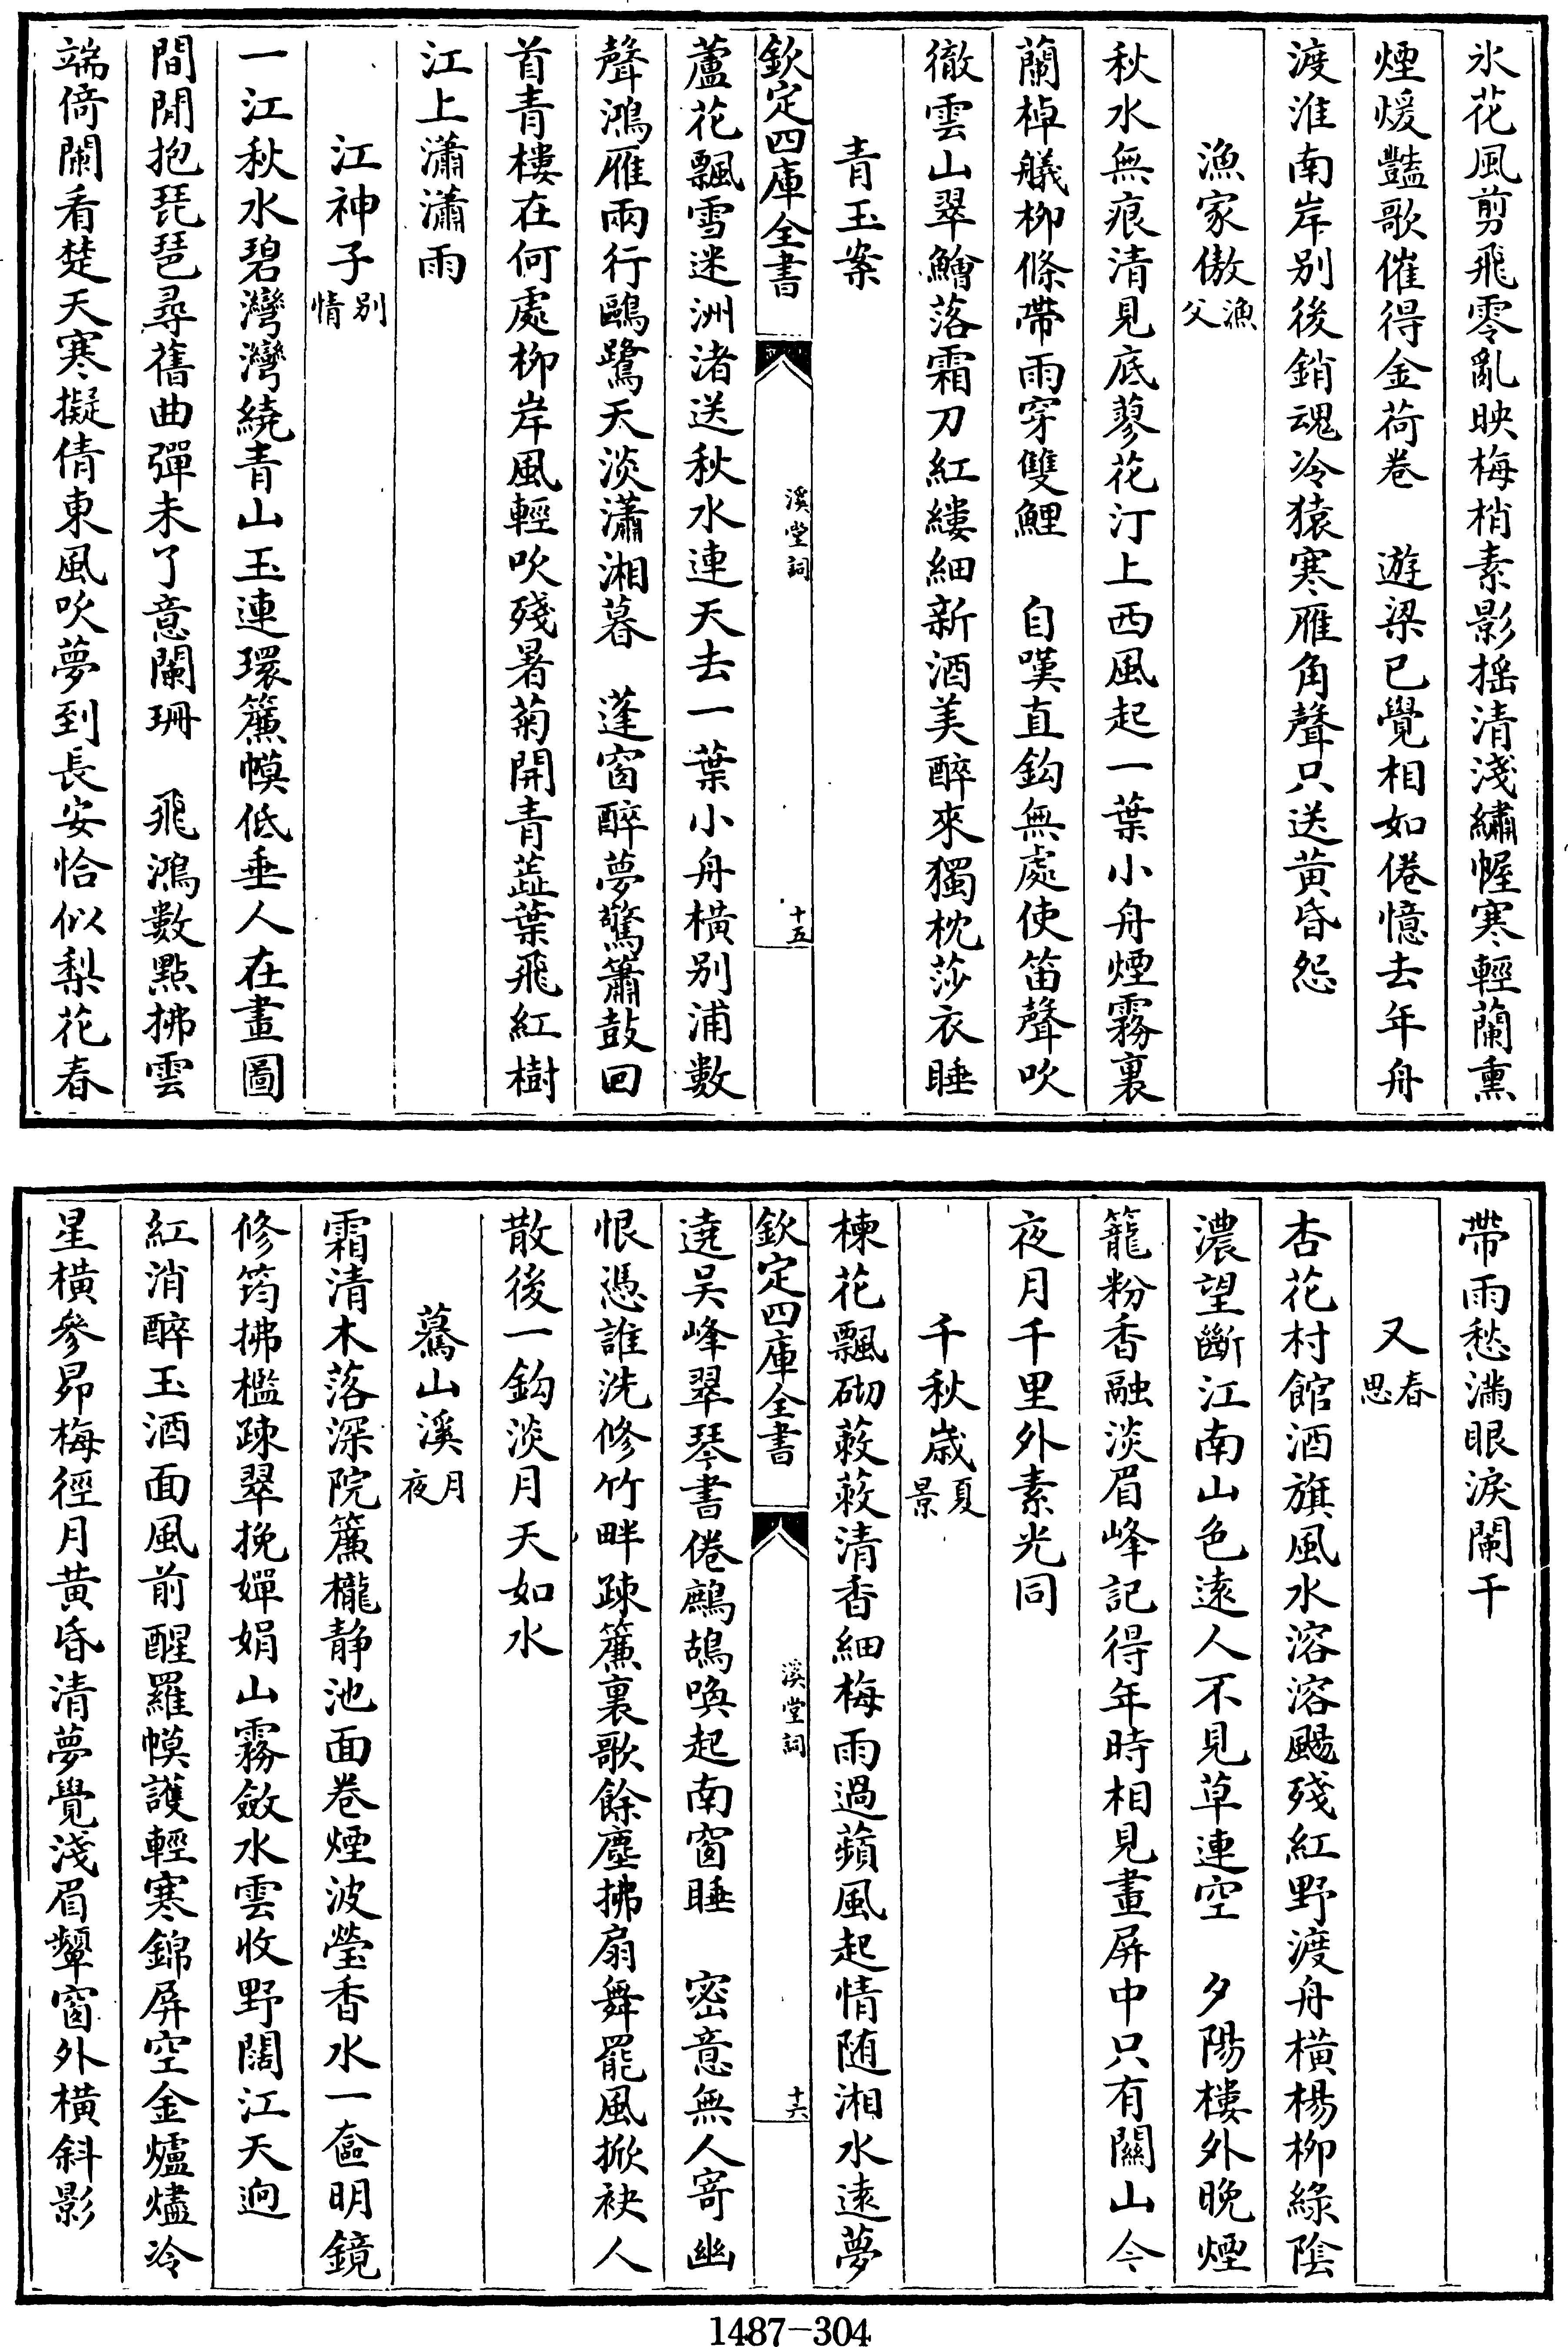 氷花風剪飛零亂映梅梢素影揺清淺繡幄寒輕蘭熏
煙煖豔歌催得金荷卷　遊梁已覺相如倦憶去年舟
渡淮南岸別後銷魂冷猿寒雁角聲只送黃昏怨
漁家傲漁父
秋水無痕清見底蓼花汀上西風起一葉小舟煙霧裏
蘭棹艤柳條帶雨穿雙鯉　自嘆直鈎無處使笛聲吹
徹雲山翠鱠落霜刀紅縷細新酒美醉來獨枕莎衣睡
青玉案
欽定四庫全書　溪堂詞　十五
蘆花飄雪迷洲渚送秋水連天去一葉小舟橫別浦數
聲鴻雁兩行鷗鷺天淡瀟湘暮　蓬窗醉夢驚簫鼓回
首青樓在何處柳岸風輕吹殘暑菊開青蕋葉飛紅樹
江上瀟瀟雨
江神子別情
一江秋水碧灣灣繞青山玉連環簾幙低垂人在畫圖
間閒抱琵琶尋舊曲彈未了意闌珊　飛鴻數點拂雲
端倚闌看楚天寒擬倩東風吹夢到長安恰似梨花春
帶雨愁滿眼淚闌干
又春思
杏花村館酒旗風水溶溶颺殘紅野渡舟橫楊柳綠陰
濃望斷江南山色遠人不見草連空　夕陽樓外晚煙
籠粉香融淡眉峰記得年時相見畫屏中只有關山今
夜月千里外素光同
千秋歲夏景
楝花飄砌蔌蔌清香細梅雨過蘋風起情随湘水遠夢
遶吴峰翠琴書倦鷓鴣喚起南窗睡　密意無人寄幽
恨憑誰洗修竹畔疎簾裏歌餘塵拂扇舞罷風掀袂人
散後一鈎淡月天如水
欽定四庫全書　溪堂詞　十六
驀山溪月夜
霜清木落深院簾櫳静池面卷煙波瑩香水一奩明鏡
修筠拂檻疎翠挽嬋娟山霧斂水雲收野闊江天迥
紅消醉玉酒面風前醒羅幙護輕寒錦屏空金爐燼冷
星橫參昴梅徑月黃昏清夢覺淺眉顰窗外橫斜影
1487-304